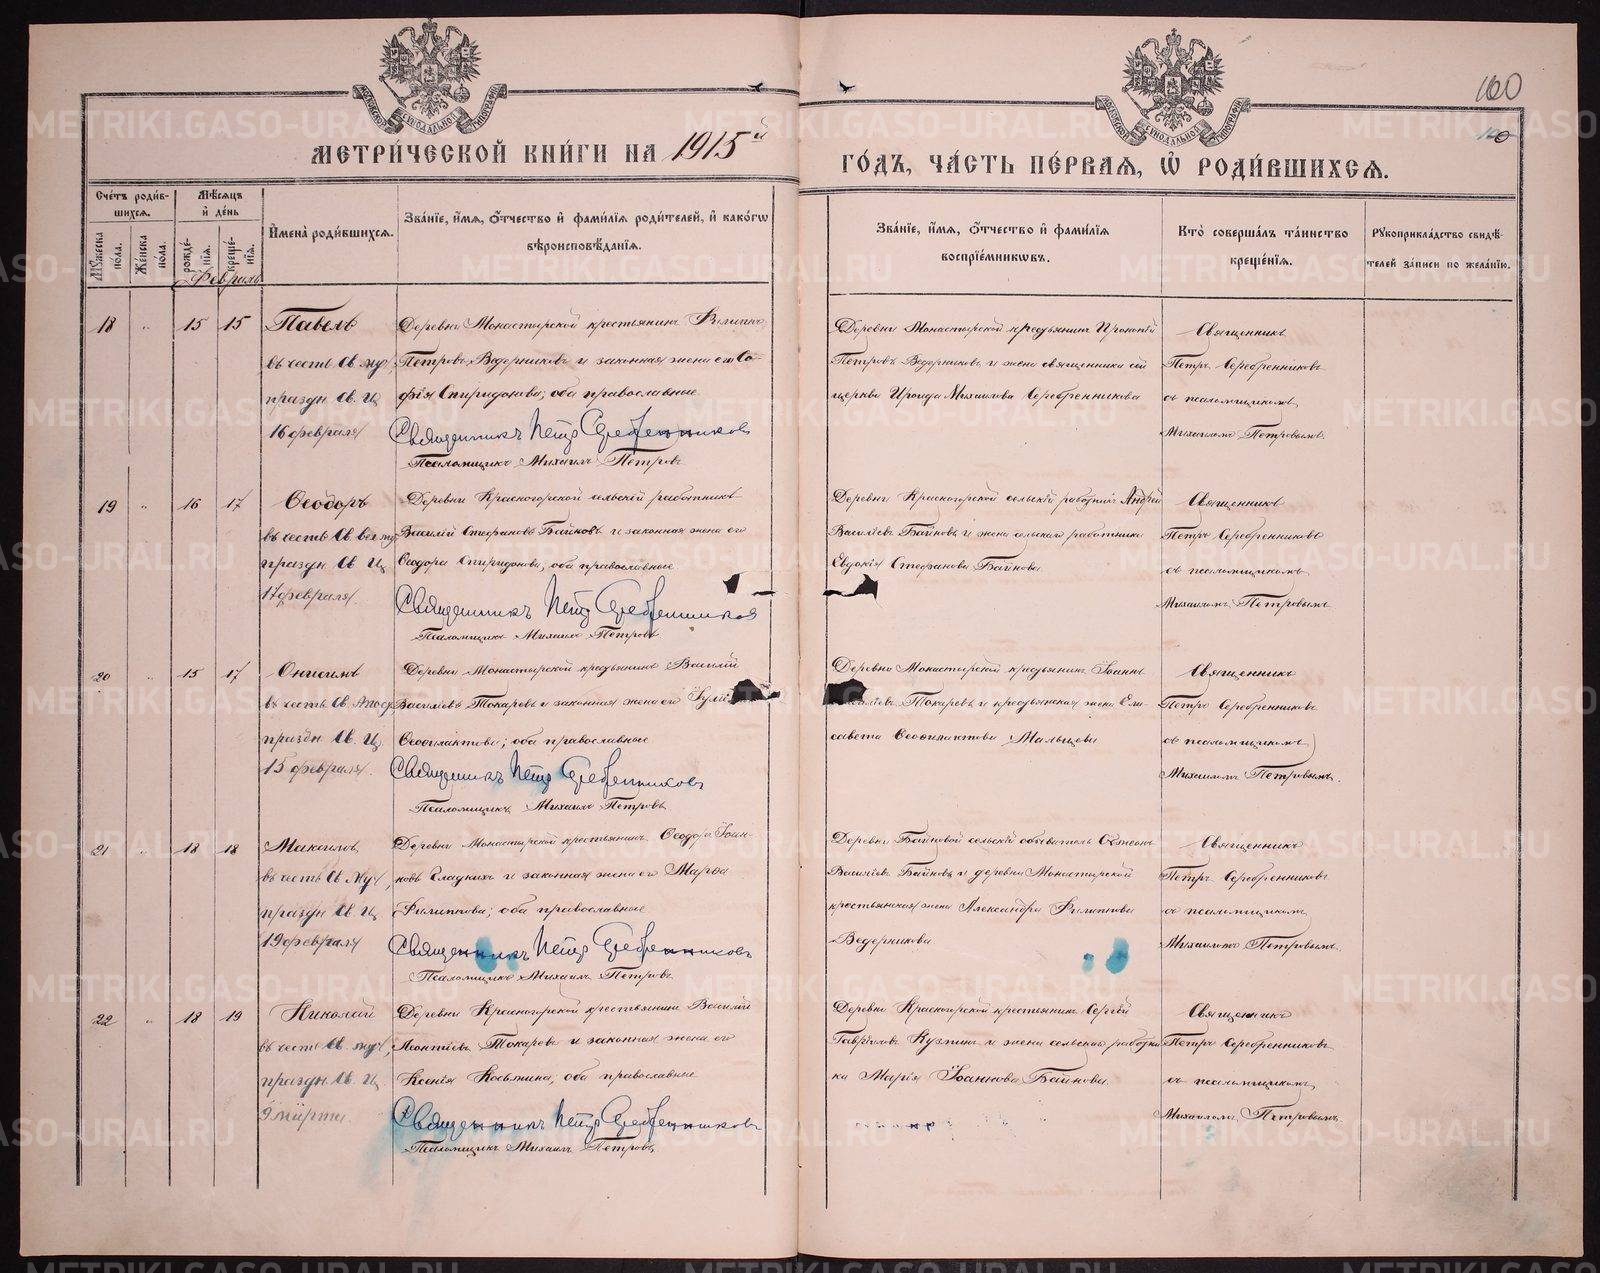 160
МЕТРИ́ЧЕСКОЙ КНИ́ГИ НА 1915й
ГО́ДЪ, ЧА́СТЬ ПЕ́РВАЯ, Ѿ РОДИ́ВШИХСЯ.
Сче́тъ роди́в-
шихся.
Мужеска по́ла.
Же́нска по́ла.
Мѣ́сяцъ
и҆ де́нь
рожде́нїя.
креще́нїя.
Февраль
И҆мена̀ роди́вшихся.
Зва́нїе, и҆́мя, ѻ҆́тчество и҆ фами́лїя роди́телей, и҆ како́гѡ
вѣроисповѣ́данїя.
Зва́нїе, и҆́мя, ѻ҆́тчество и҆ фами́лїя
воспрїе́мниковъ.
Кто̀ соверша́лъ та́инство
креще́нїя.
Рукоприкла́дство свидѣ́-
телей за́писи по жела́нїю.
18 „ 15 15
Павелъ
въ честь Св. муч,
праздн. Св. Ц.
16 февраля
Деревни Монастырской крестьянинъ Филиппъ
Петровъ Ведерниковъ и законная жена его Со-
фія Спиридонова; оба православные
Священникъ Петр Серебренников
Псаломщикъ Михаилъ Петровъ
Деревни Монастырской крестьянинъ Прокопій
Петровъ Ведерниковъ и жена священника сей
церкви Ираида Михаилова Серебренникова
Священникъ
Петръ Серебренниковъ
съ псаломщикомъ
Михаиломъ Петровымъ.
19 „ 16 17
Ѳеодоръ
въ честь Св. вел. муч
праздн. Св. Ц.
17 февраля.
Деревни Красногорской сельскій работникъ
Василій Стефановъ Байновъ и законная жена его
Ѳеодора Спиридонова, оба православные
Священникъ Петр Серебренников
Псаломщикъ Михаилъ Петровъ
Деревни Красногорской сельскій работникъ Андрей
Василіевъ Байновъ и жена сельскаго работника
Евдокія Стефанова Байнова
Священникъ
Петръ Серебренниковъ
съ псаломщикомъ
Михаиломъ Петровымъ
20 „ 15 17
Онисимъ
въ честь Св. Апост.
праздн. Св. Ц.
15 февраля.
Деревни Монастырской крестьянинъ Василій
Василіевъ Токаревъ и законная жена его
Ѳеофилактова; оба православные
Священникъ Петр Серебренников
Псаломщикъ Михаилъ Петровъ
Деревни Монастырской крестьянинъ Іоаннъ
Токаревъ и крестьянская жена Ели-
савета Ѳеофилактова Мальцева
Священникъ
Петръ Серебренниковъ
съ псаломщикомъ
Михаиломъ Петровымъ.
21 „ 18 18
Максимъ
въ честь Св. Муч,
праздн. Св. Ц.
19 февраля
Деревни Монастырской крестьянинъ Ѳеодоръ Іоан-
новъ Гладкихъ и законная жена его Марѳа
Филиппова; оба православные
Священникъ Петр Серебренников
Псаломщикъ Михаилъ Петровъ
Деревни Байновой сельскій обыватель Симеонъ
Василіевъ Байновъ и деревни Монастырской
крестьянская жена Александра Филиппова
Ведерникова
Священникъ
Петръ Серебренниковъ
съ псаломщикомъ
Михаиломъ Петровымъ
22 „ 18 19
Николай
въ честь Св. муч,
праздн. Св. Ц.
9 марта.
Деревни Красногорской крестьянинъ Василій
Леонтіевъ Токаревъ и законная жена его
Ксенія Косьмина, оба православные
Священникъ Петр Серебренников
Псаломщикъ Михаилъ Петровъ
Деревни Красногорской крестьянинъ Сергѣй
Гавріиловъ Кузминъ и жена сельскаго работни-
ка Марія Іоаннова Байнова
Священникъ
Петръ Серебренниковъ
съ псаломщикомъ
Михаиломъ Петровымъ
METRIKI.GASO-URAL.RU